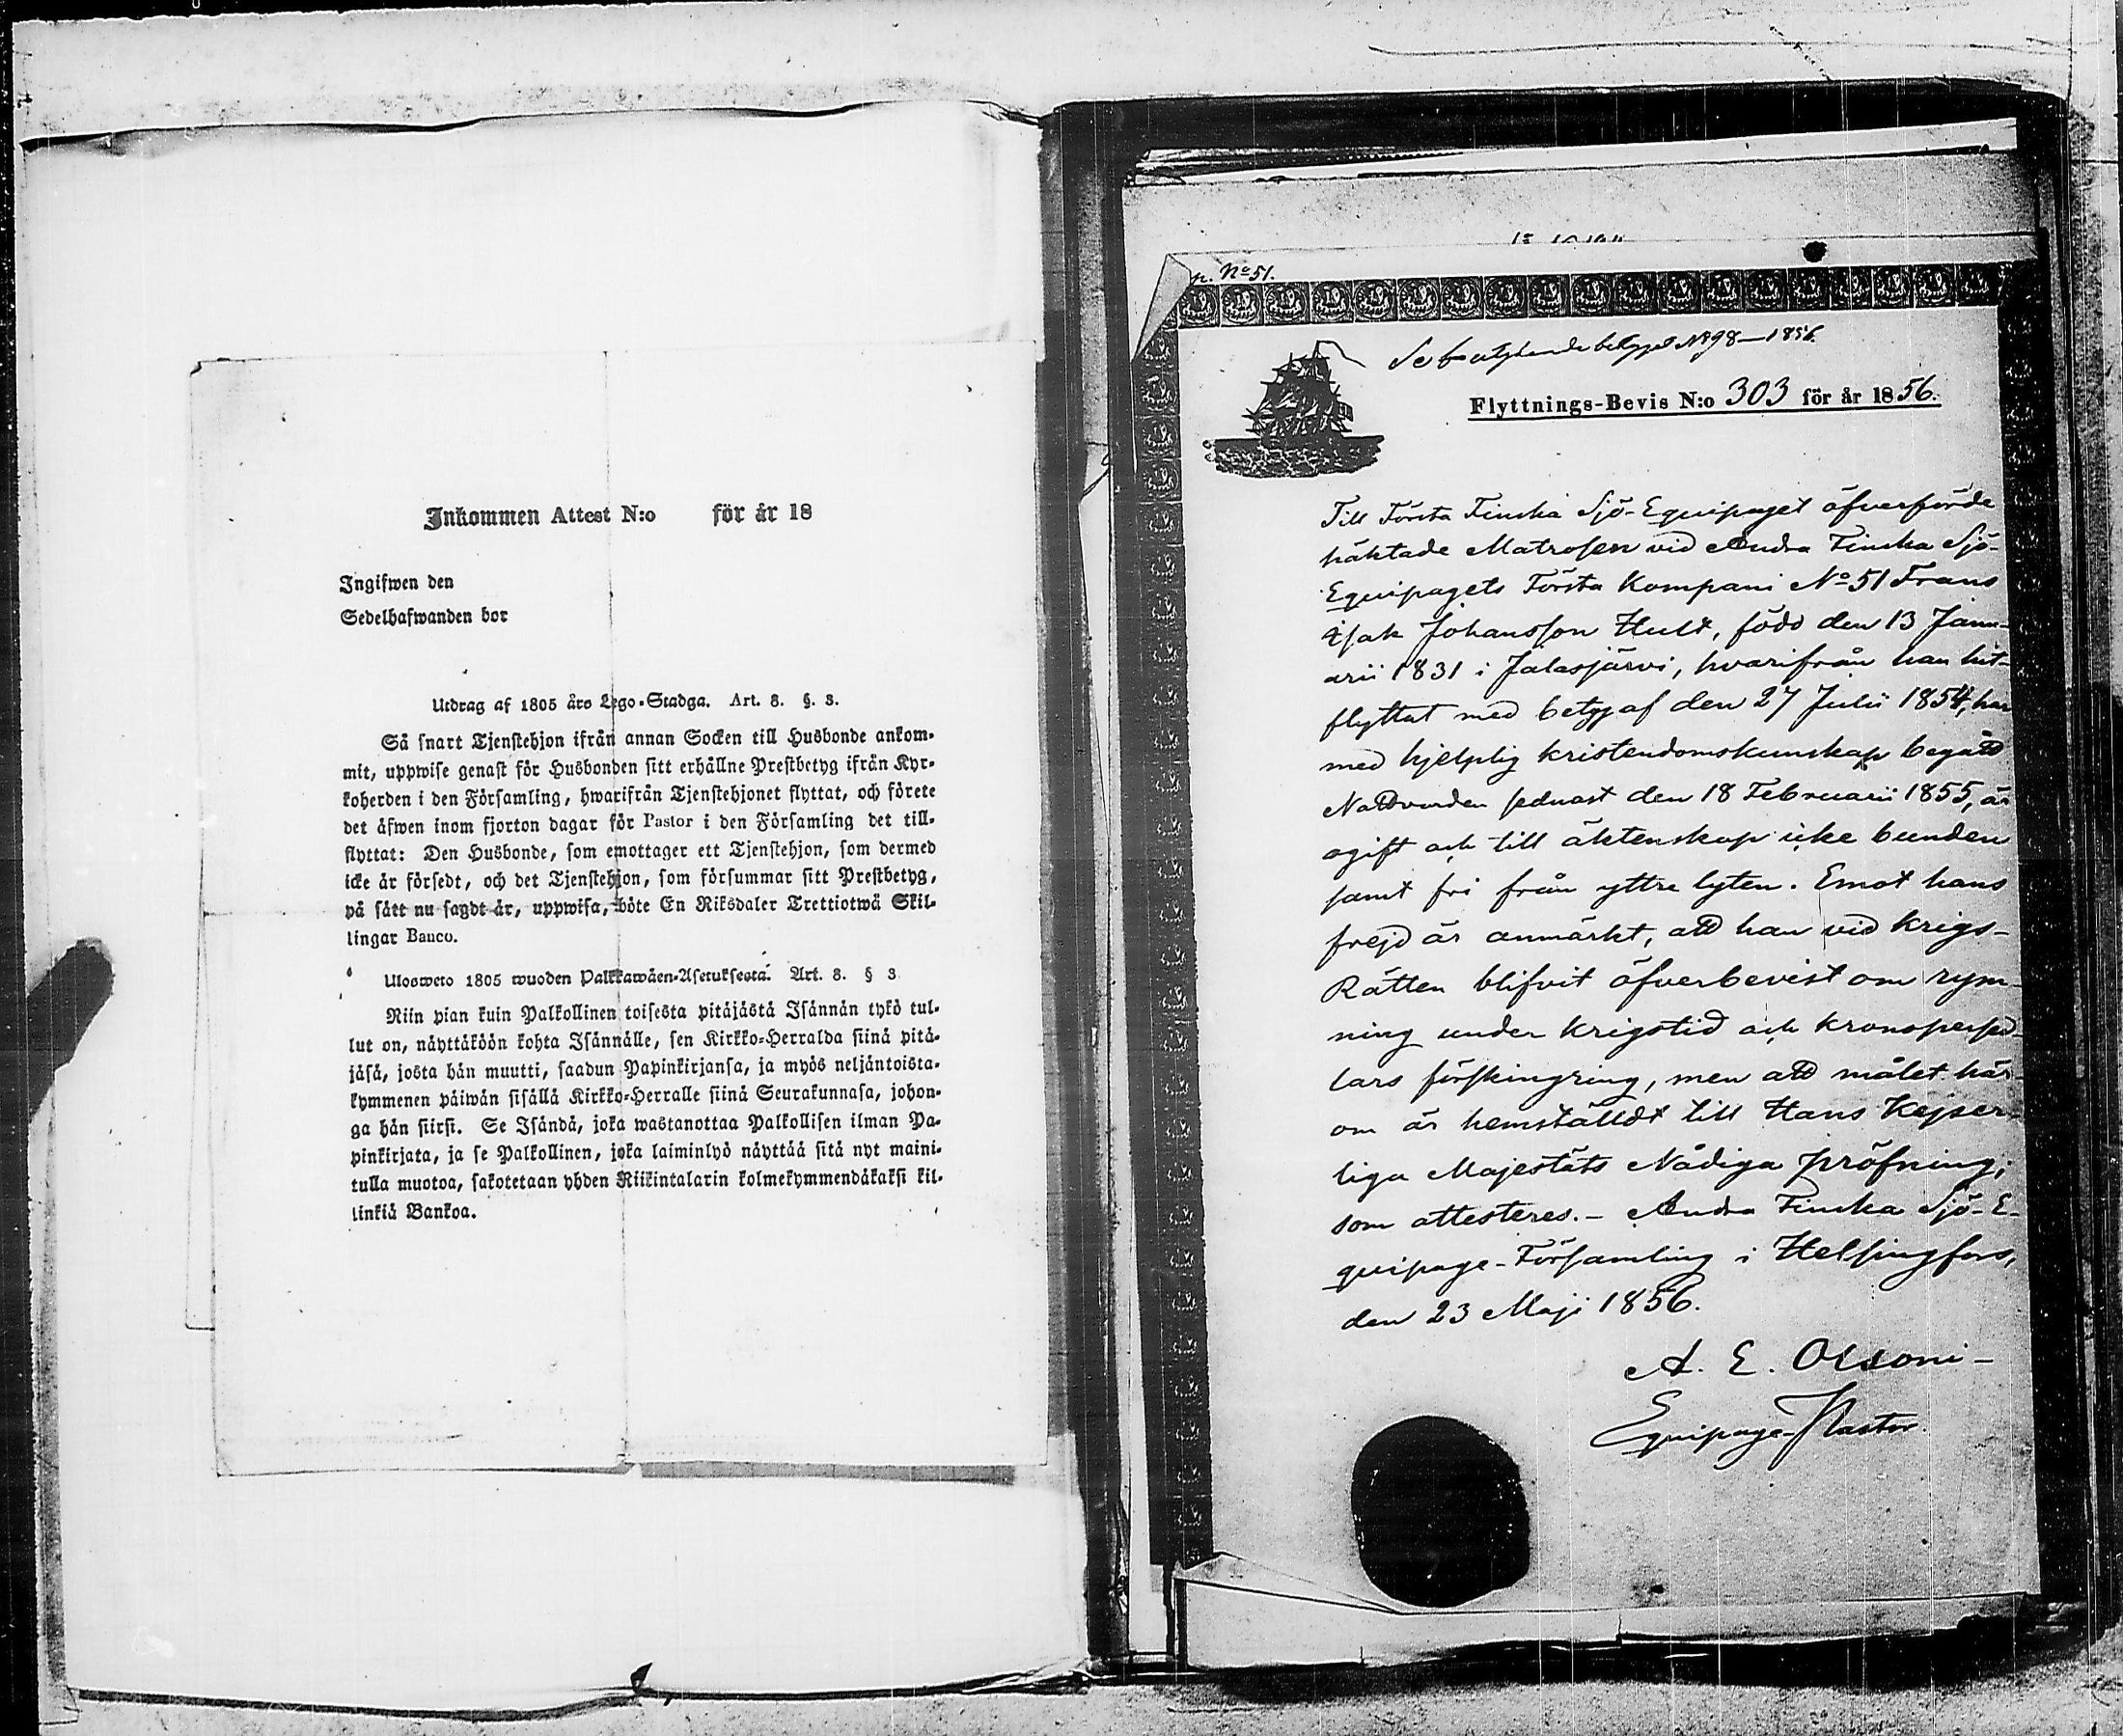 Inkommen Attest N:o för år 18
Ingifwen den
Sedelhafwanden bor
Utdrag af 1805 års Lego-Stadga. Art. 8. §. 3.
Så snart Tjenstehjon ifrån annan Socken till Husbonde ankom-
mit, uppwise genast för Husbonden sitt erhållne Prestbetyg ifrån Kyr-
koherden i den Församling, hwarifrån Tjenstehjonet flyttat, och förete
det äfwen inom fjorton dagar för Pastor i den Församling det till-
flyttat: Den Husbonde, som emottager ett Tjenstehjon, som dermed
icke är försedt, och det Tjenstehjon, som försummar sitt Prestbetyg,
på sätt nu sagdt är, uppwisa, böte En Riksdaler Trettiotwå Skil-
lingar Banco.
Ulosweto 1805 wuoden Palkkawäen-Asetuksesta. Art. 8. § 3
Niin pian kuin Palkollinen toisesta pitäjästä Isännän tykö tul-
lut on, näyttäköön kohta Isännälle, sen Kirkko-Herralda siinä pitä-
jäsä, josta hän muutti, saadun Papinkirjansa, ja myös neljäntoista-
kymmenen päiwän sisällä Kirkko-Herralle siinä Seurakunnasa, johon-
ga hän siirsi. Se Isändä, joka wastanottaa Palkollisen ilman Pa-
pinkirjata, ja se Palkollinen, joka laiminlyö näyttää sitä nyt maini-
tulla muotoa, sakotetaan yhden Riikintalarin kolmekymmendäkaksi kil-
linkiä Bankoa.
No 51.
Se utgående betyget No 98-1856.
Flyttnings-Bevis N:o 303 för år 1856.
Till Första Finska Sjö-Equipaget öfverförde
häktade Matrosen vid Andra Finska Sjö-
Equipagets Första Kompani No 51 Frans
Isak Johansson Hult, född den 13 Janu-
arii 1831 i Jalasjärvi, hvarifrån han hit-
flyttat med betyg af den 27 Julii 1854, har
med hjelplig kristendomskunskap begått
Nattvarden sednast den 18 Februarii 1855, är
ogift och till äktenskap icke bunden
samt fri från yttre lyten. Emot hans
frejd är anmärkt, att han vid Krigs-
Rätten blifvit öfverbevist om rym-
ning under krigstid och kronopersed-
lars förskingring, men att målet här-
om är hemställdt till Hans Kejser-
liga Majestäts Nådiga pröfning;
som attesteres. - Andra Finska Sjö-E-
quipage-Församling i Helsingfors,
den 23 Maji 1856.
A. E. Olsoni-
Equipage-Pastor.